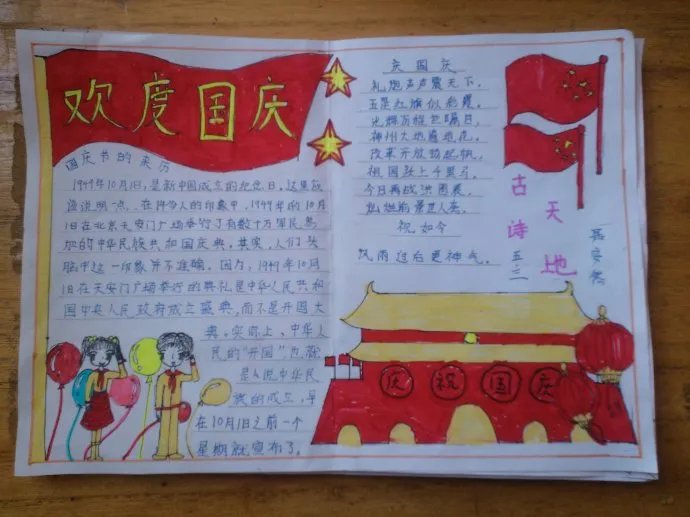 欢度国庆
国庆节的来历
1949年10月1日,是新中国成立的纪念日。这里应
该说明一点,在许多人的印象中,1949年的10月
1日在北京天安门广场举行了有数十万军民参
加的中华民族共和国庆典。其实,人们头
脑中这一印象并不准确。因为,1949年10月
1日在天安门广场举行的典礼是中华人民共和
国中央人民政府成立盛典,而不是开国大
典。实际上,中华人
民的"开国",也就
是么说中华民
族的成立,早
在10月1日之前一个
星期就宣布了。
庆国庆
礼炮声声震天下,
五星红旗似彩霞。
光辉历程世瞩目,
神州大地遍地花。
改革开放劲起帆,
祖国跃上千里马。
今日再战洪图展,
灿烂前景世人夸。
祝如今
风雨过后更神气。
古诗
天地
五.二
庆祝国庆